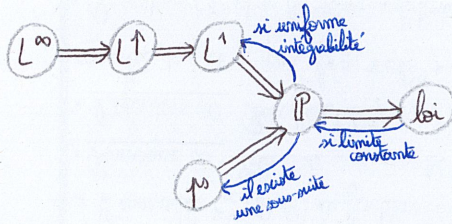 L∞ L↑ L¹
si uniforme
intégrabilité
ℙ
loi
si limite
constante
ps
il existe
une sous-suite